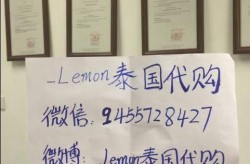 -Lemon泰国代购
微信：2455728427
微博：Lemon泰国代购